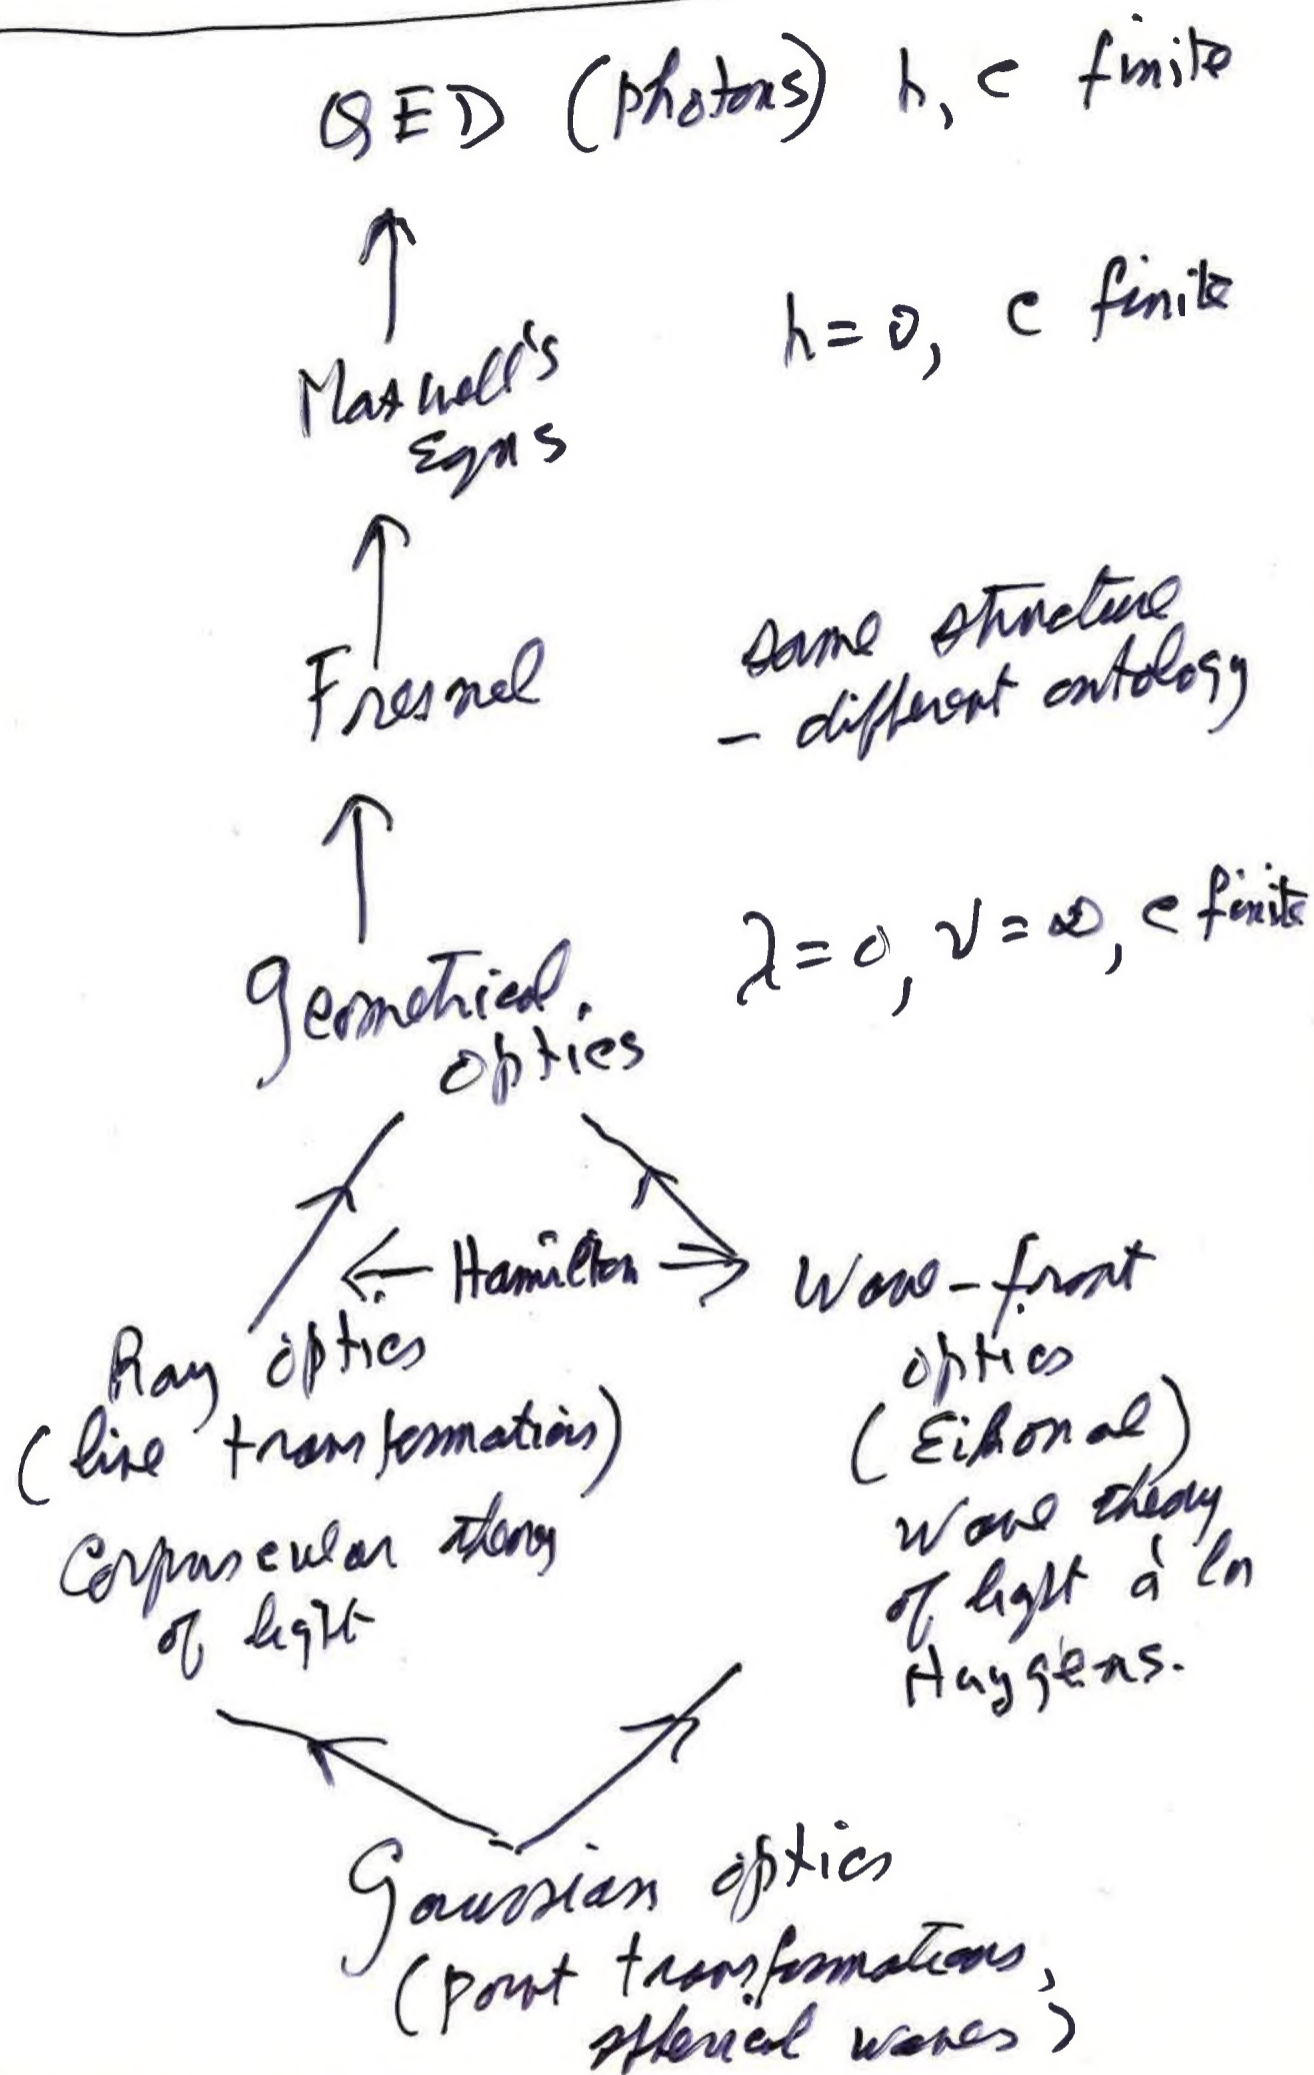 QED (photons) h, c finite
h = 0, c finite
Maxwell's
Eqns
Fresnel
same structure
- different ontology
λ = 0, ν = ∞, c finite
Geometrical
optics
← Hamilton →
Ray optics
(line transformations)
Corpuscular theory
of light
Wave-front
optics
(Eikonal)
Wave theory
of light à la
Huygens.
Gaussian optics
(point transformations,
spherical waves)